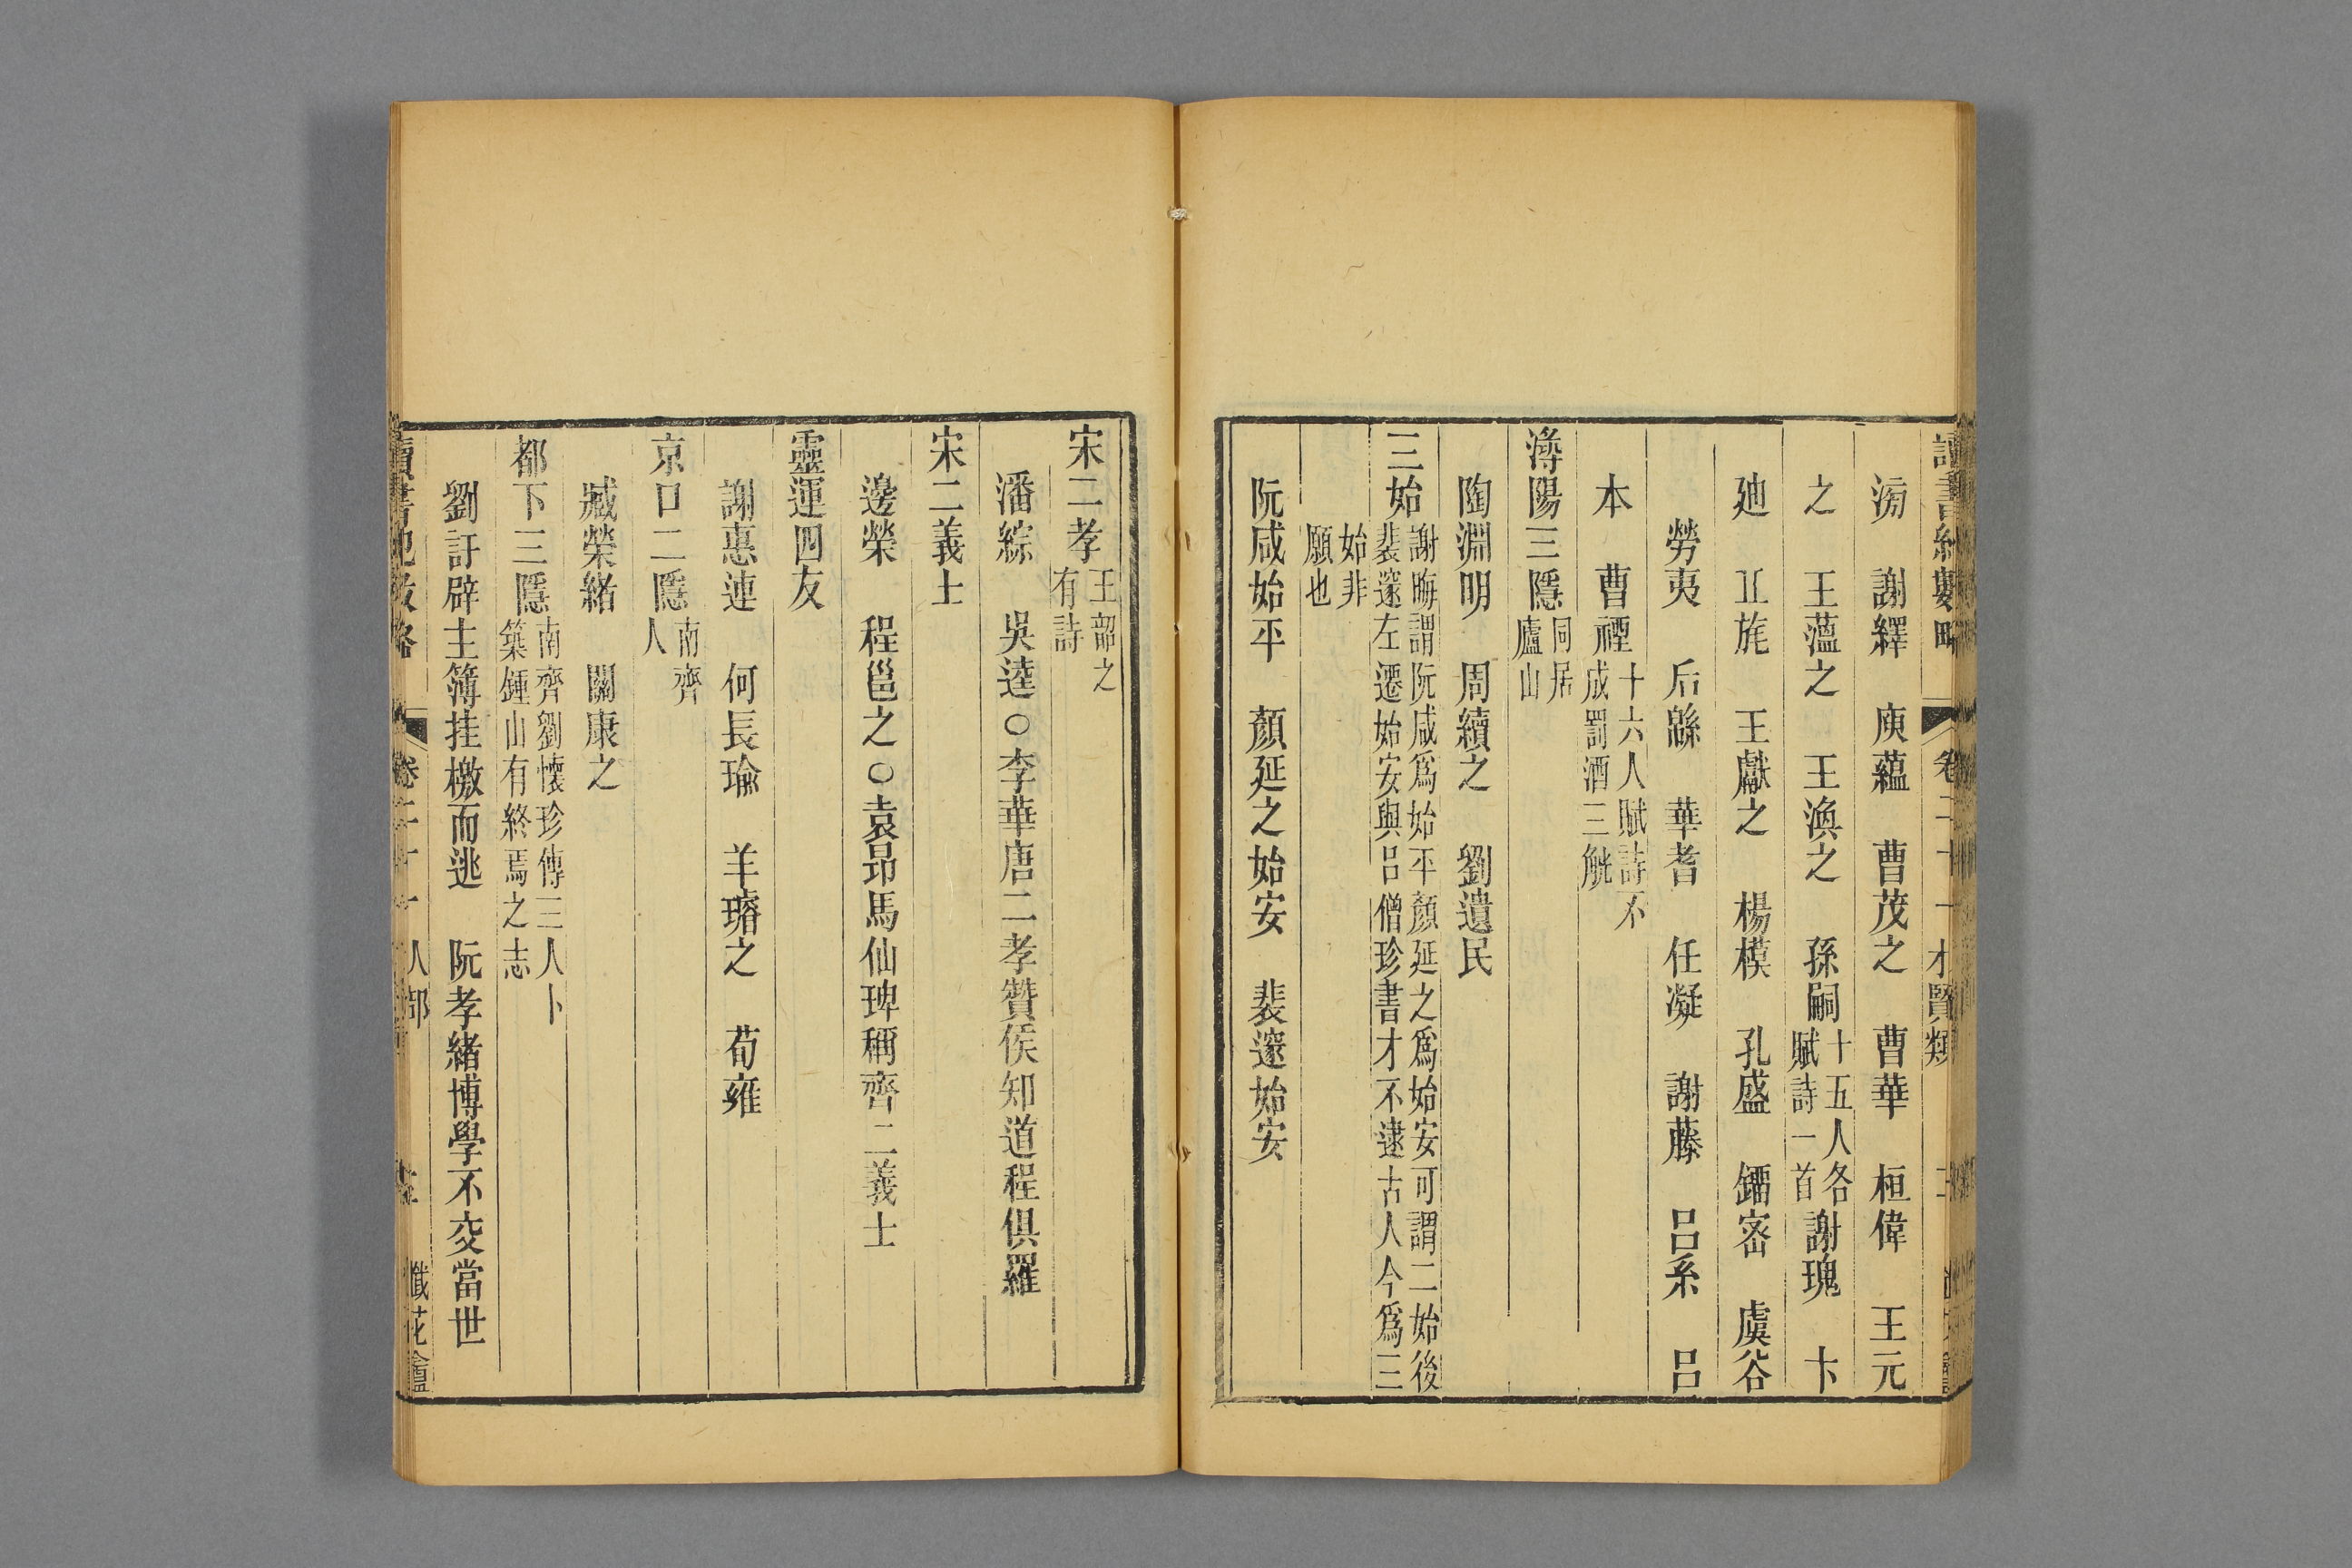 讀書紀數略 卷二十一 才賢類
汸 謝繹 庾蘊 曹茂之 曹華 桓偉 王元
之 王蘊之 王渙之 孫嗣 十五人各賦詩一首 謝瑰 卞
廸 丘旄 王獻之 楊模 孔盛 劉密 虞谷
勞夷 后緜 華耆 任凝 謝藤 呂系 呂
本 曹禋 十六人賦詩不成罰酒三觥
潯陽三隱 同居廬山
陶淵明 周續之 劉遺民
三始 謝晦謂阮咸爲始平顏延之爲始安可謂二始後裴邃左遷始安與呂僧珍書才不逮古人今爲三
始非願也
阮咸始平 顏延之始安 裴邃始安
宋二孝 王韶之有詩
潘綜 吳逵○李華唐二孝贊侯知道程俱羅
宋二義士
邊榮 程邕之○袁昂馬仙琕稱齊二義士
靈運四友
謝惠連 何長瑜 羊璿之 荀雍
京口二隱 南齊人
臧榮緒 關康之
都下三隱 南齊劉懷珍傳三人卜築鍾山有終焉之志
劉訏辟主簿挂檄而逃 阮孝緒博學不交當世
讀書紀數略 卷二十一 人部